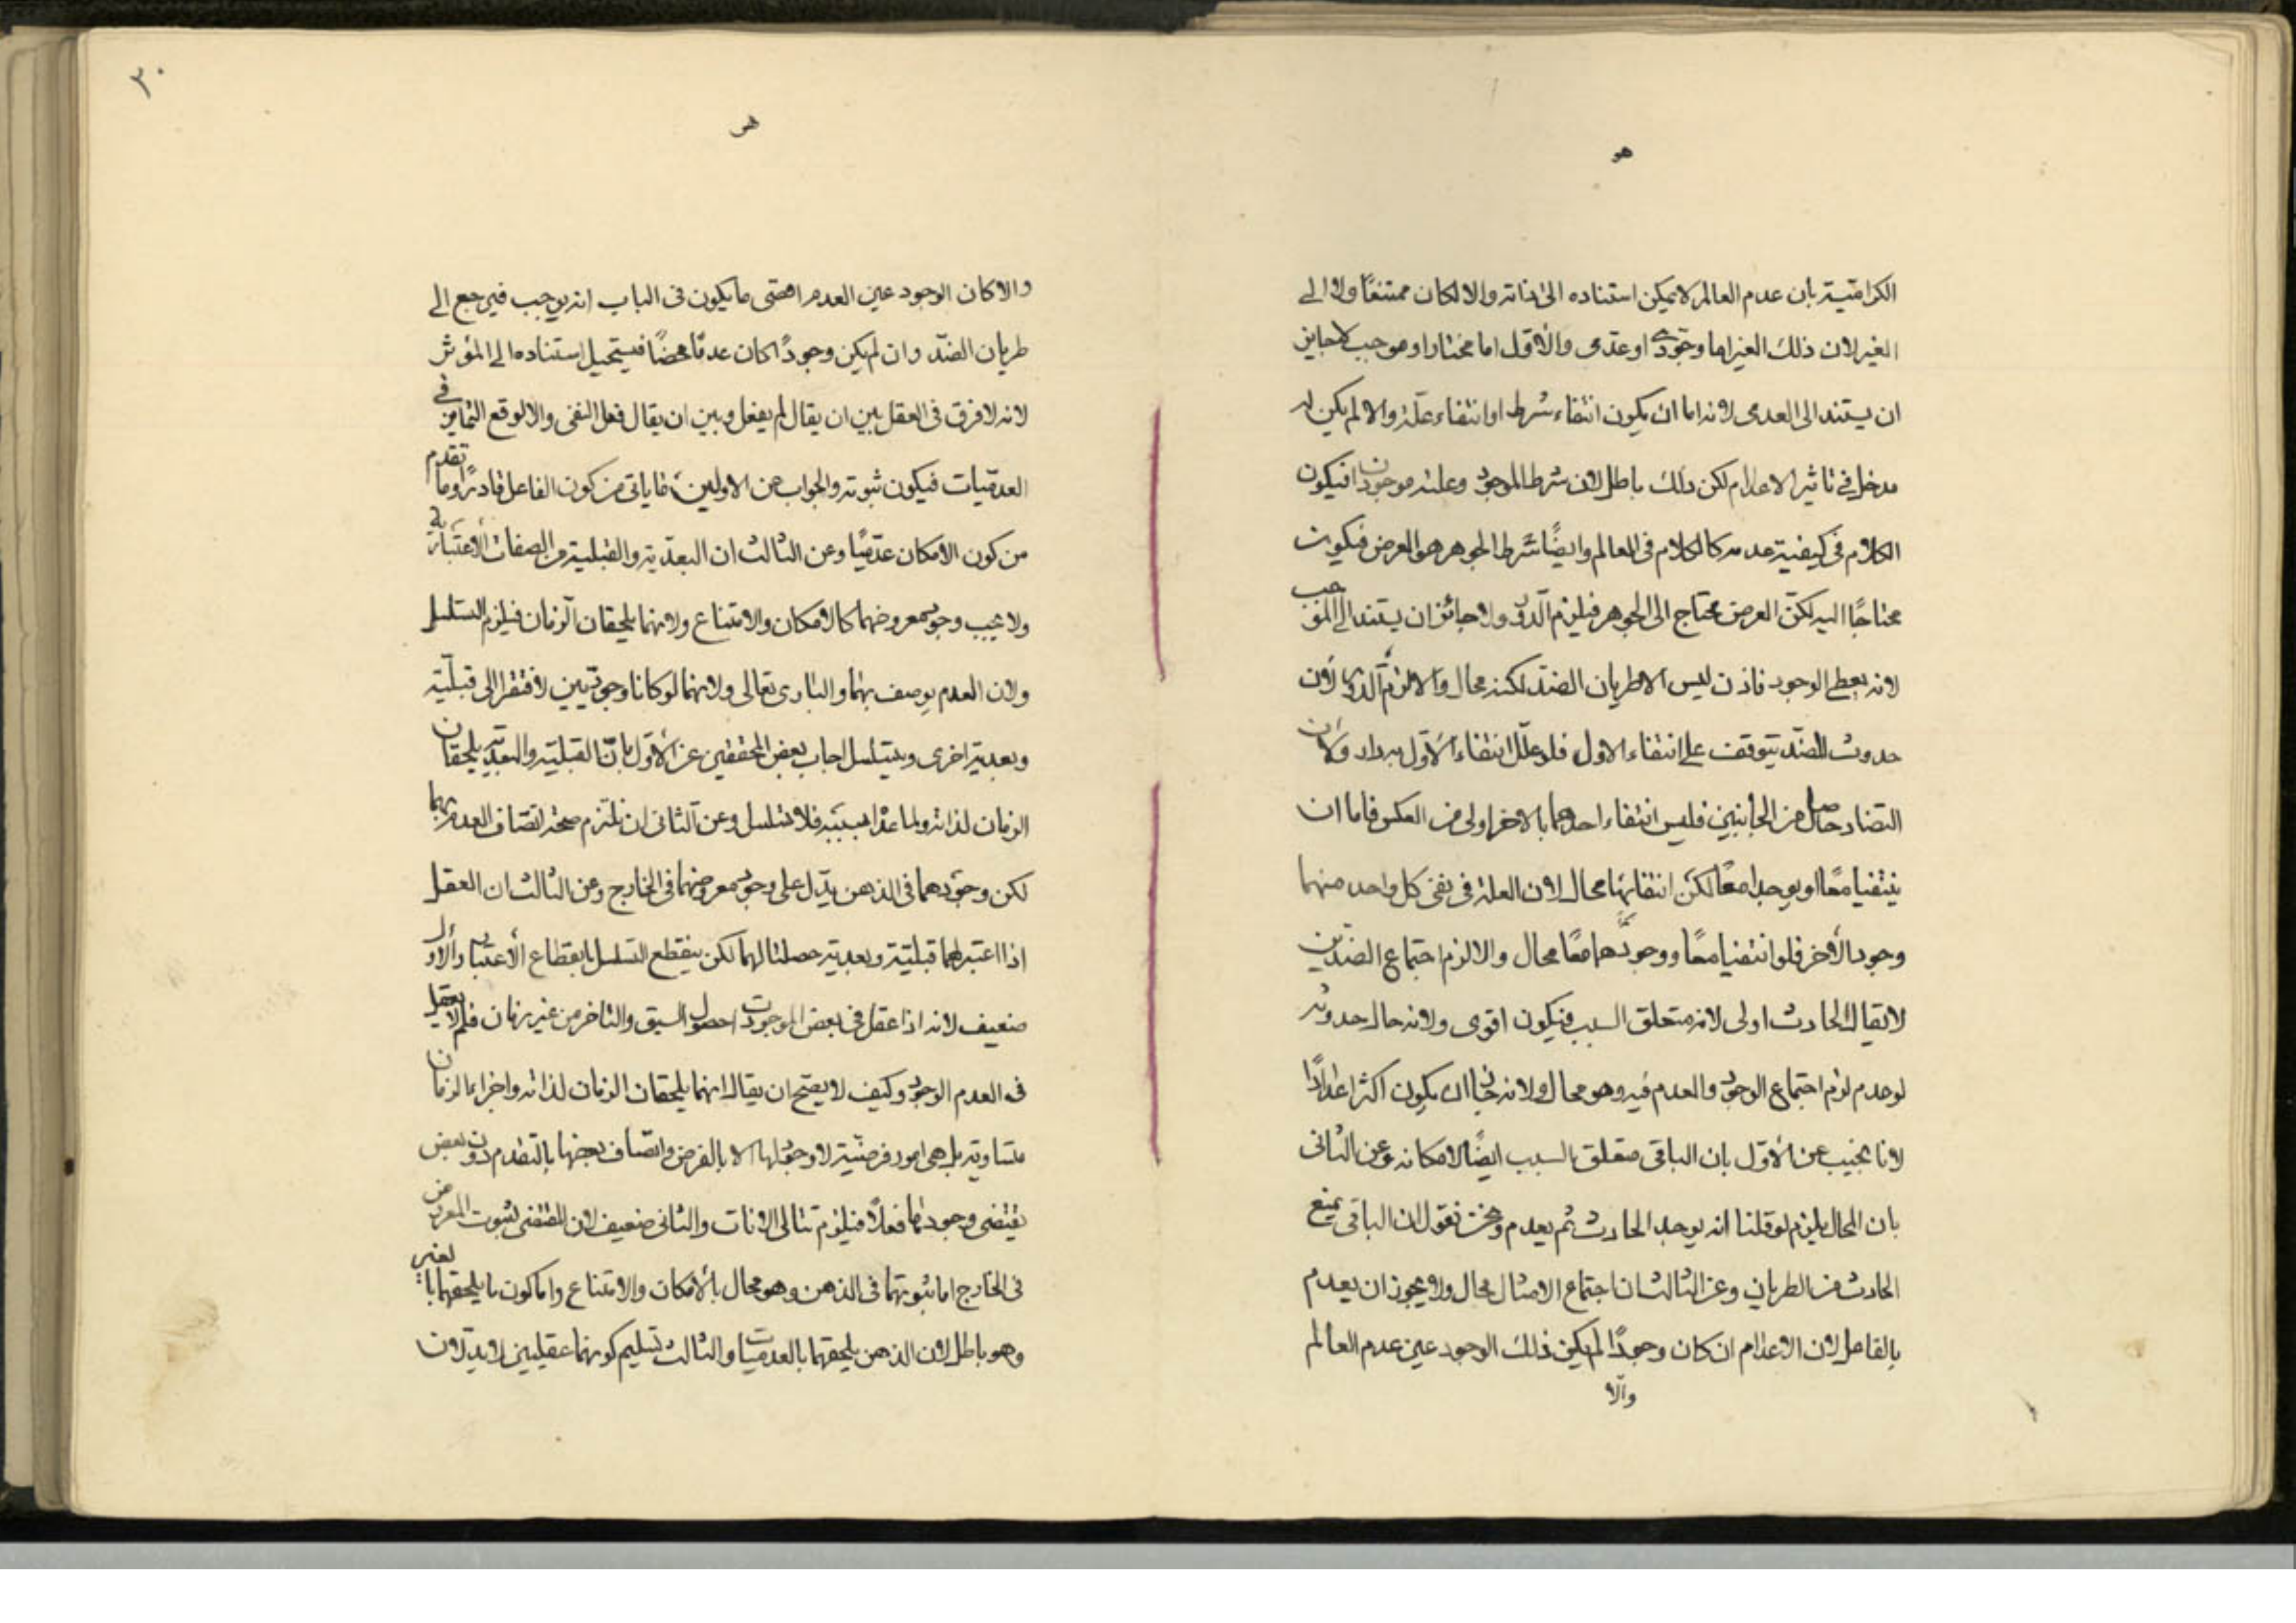 هو
الكرامتية بان عدم العالم لا يمكن استناده الى ذاته والا لكان ممتنعًا ولا الى
الغير لان ذلك الغير اما وجودى او عدمى والأول اما مختار او موجب لا جايز
ان يستند الى العدمى لانه اما ان يكون انتفاء شرط او انتفاء علة والا لم يكن له
مدخل فى تاثير الاعدام لكن ذلك باطل لان شرط الموجود وعلته موجودان فيكون
الكلام فى كيفية عدمه كالكلام فى العالم وايضًا شرط الجوهر هو العرض فيكون
محتاجًا اليه لكن العرض محتاج الى الجوهر فيلزم الدور ولا جائز ان يستند الى الموجب
لانه يعطى الوجود فاذن ليس الا طريان الضد لكنه محال والا لزم الدور لان
حدوث الضد يتوقف على انتفاء الاول فلو علل انتفاء الأول به دار ولان
التضاد حاصل من الجانبين فليس انتفاء احدهما بالاخر اولى من العكس فاما ان
ينتفيا معًا او يوجدا معًا لكن انتفائهما محال لان العلة فى نفى كل واحد منهما
وجود الأخر فلو انتفيا معًا وجودهما معًا محال والا لزم اجتماع الضدين
لا يقال الحادث اولى لانه متعلق السبب فيكون اقوى ولانه حال حدوثه
لو عدم لزم اجتماع الوجود والعدم فيه وهو محال ولانه جاز ان يكون اكثر اعدادًا
لانا نجيب عن الأول بان الباقى متعلق السبب ايضًا لامكانه وعن الثانى
بان المحال يلزم لو قلنا انه يوجد الحادث ثم يعدم ونحن نقول ان الباقى يمنع
الحادث من الطريان وعن الثالث ان اجتماع الامثال محال ولا يجوز ان يعدم
بالفاعل لان الاعدام ان كان وجودًا لم يكن ذلك الوجود عين عدم العالم
والّا
٣٠
والا كان الوجود عين العدم اقصى ما يكون فى الباب انه يوجب فيرجع الى
طريان الضد وان لم يكن وجودًا كان عدمًا محضًا فيستحيل استناده الى المؤثر
لانه لا فرق فى العقل بين ان يقال لم يفعل وبين ان يقال فعل النفى والا لوقع التمايز فى
العدميات فيكون ثبوته والجواب عن الاولين ما ياتى من كون الفاعل قادرًا وما تقدم
من كون الامكان عدميًا وعن الثالث ان البعدية والقبلية من الصفات الاعتبارية
ولا يجب وجود معروضهما كالامكان والامتناع ولانهما يلحقان الزمان فيلزم التسلسل
ولان العدم يوصف بهما والبارى تعالى ولانهما لو كانا وجوديين لافتقرا الى قبلية
وبعدية اخرى ويتسلسل اجاب بعض المحققين عن الأول بان القبلية والبعدية يلحقان
الزمان لذاته ولما عداه بسببه فلا تسلسل وعن الثانى ان نلتزم صحة اتصاف العدم بهما
لكن وجودهما فى الذهن يدل على وجود معروضهما فى الخارج وعن الثالث ان العقل
اذا اعتبر لهما قبلية وبعدية حصلتا لهما لكن ينقطع التسلسل بانقطاع الأعتبار والأول
ضعيف لانه اذا عقل فى بعض الموجودات حصول السبق والتاخر من غير زمان فلم لا يعقل
فى العدم الوجود وكيف لا يصح ان يقال انهما يلحقان الزمان لذاته واجزاء الزمان
متساوية بل هى امور فرضية لا وجود لها الا بالفرض واتصاف بعضها بالتقدم دون بعض
يقتضى وجودها فعلًا فيلزم تتالى الانات والثانى ضعيف لان المقتضى لثبوت المعروض
فى الخارج اما ثبوتهما فى الذهن وهو محال بالأمكان والامتناع واما كون ما يلحقهما بالغير
وهو باطل لان الذهن يلحقهما بالعدميات والثالث تسليم كونهما عقليين لا يدلان